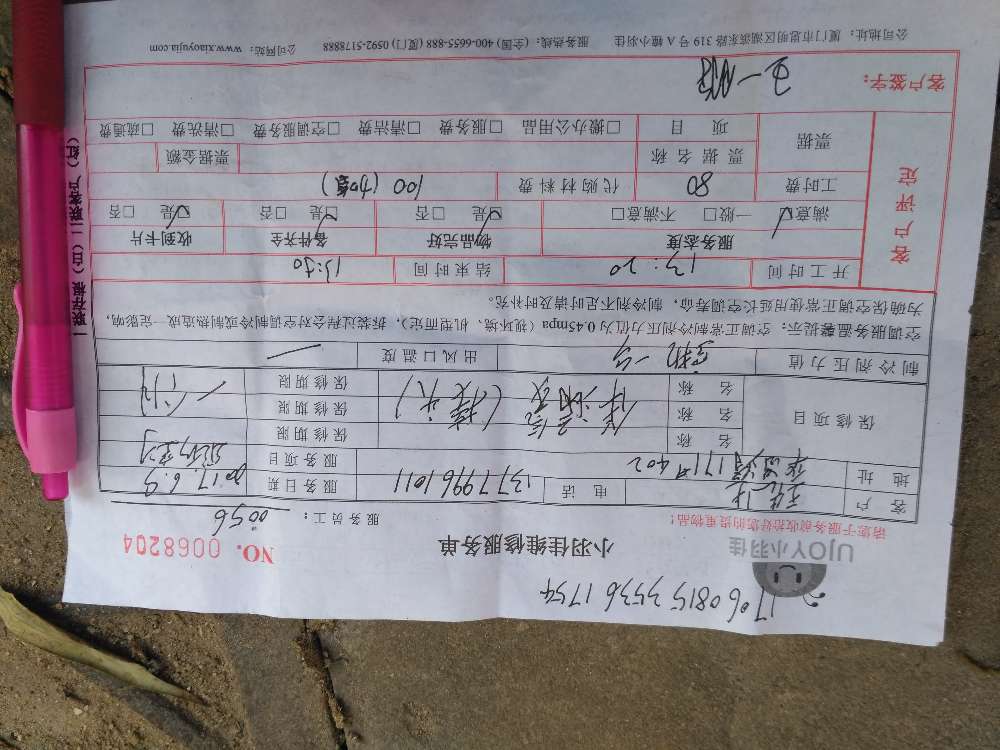 1706 0815 3536 1754
UJOY小羽佳
小羽佳维修服务单
NO. 0068204
请您于服务前收拾好您的贵重物品!
服务员工: 0056
客户 电话 13779961011 服务日期 2017.6.9
地址 171号402 服务项目
保修项目 名称 保修期限
名称 保修期限
名称 保修期限
制冷剂压力值 出风口温度
空调服务温馨提示: 空调正常制冷剂压力值为0.45mpa (视环境、机型而定), 拆装过程会对空调制冷或制热造成一定影响,
为确保空调正常使用延长空调寿命, 制冷剂不足时请及时补充。
客户评定
开工时间 13:20 结束时间 13:30
服务态度 物品完好 备件齐全 收到卡片
☑满意 一般□ 不满意□ ☑是 □否 ☑是 □否 ☑是 □否
工时费 80 代购材料费 100 (加氟)
票据 票据名称 票据金额
项目 □搬办公用品 □服务费 □清洁费 □空调服务费 □清洗费 □疏通费
客户签字:
一联存根 (白) 二联客户 (红)
公司地址: 厦门市思明区湖滨东路 319 号 A 幢小羽佳 服务热线: (全国) 400-6655-888 (厦门) 0592-5178888 公司网站: www.xiaoyujia.com